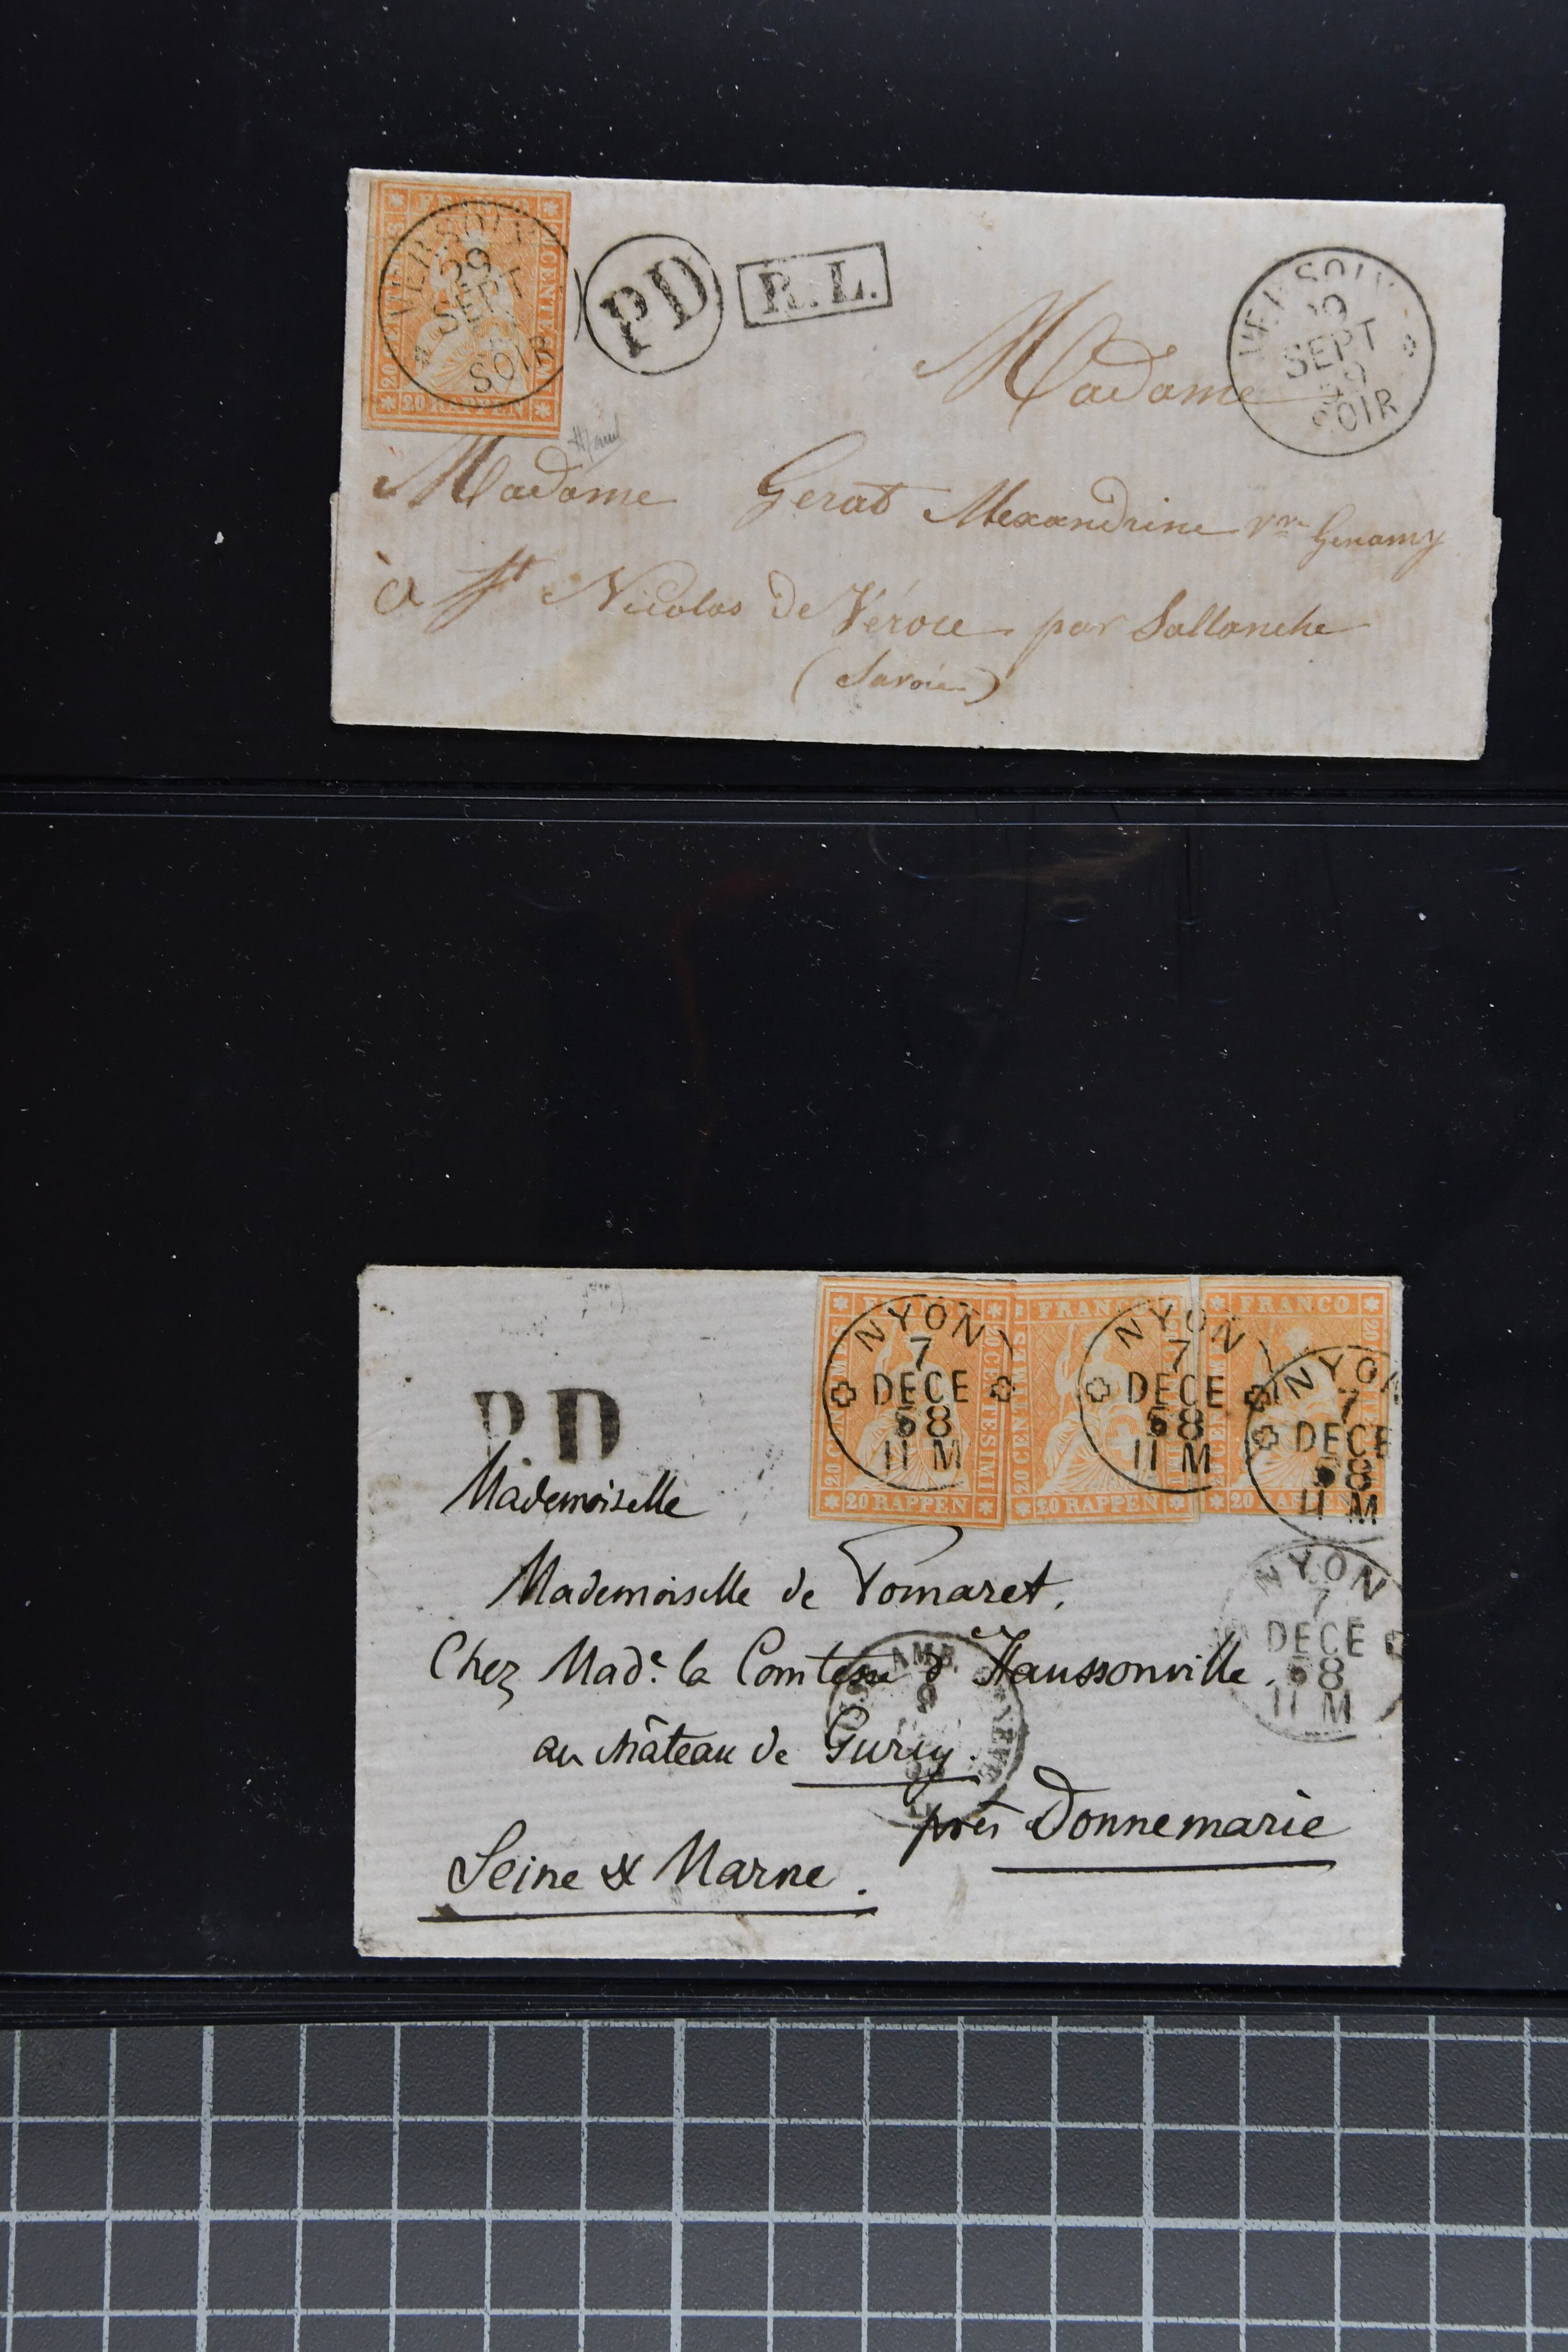 FRANCO
20 RAPPEN
VERSOIX
29
SEPT
SOIR
PD
R.L.
SEPT
Madame
Madame Gerat Alexandrine
à St Nicolas de Véroce par Sallanche
(Savoie)
FRANCO
20 RAPPEN
20 CENTESIMI
NYON
7
DECE
58
11 M
FRANCO
20 RAPPEN
NYON
7
DECE
58
11 M
FRANCO
20 RAPPEN
NYON
7
DECE
58
11 M
P.D
Mademoiselle
NYON
7
DECE
58
11 M
Mademoiselle de Pomaret,
Chez Made. la Comtesse d'Haussonville.
AMB.
9
au château de Gurcy.
près Donnemarie
Seine & Marne.